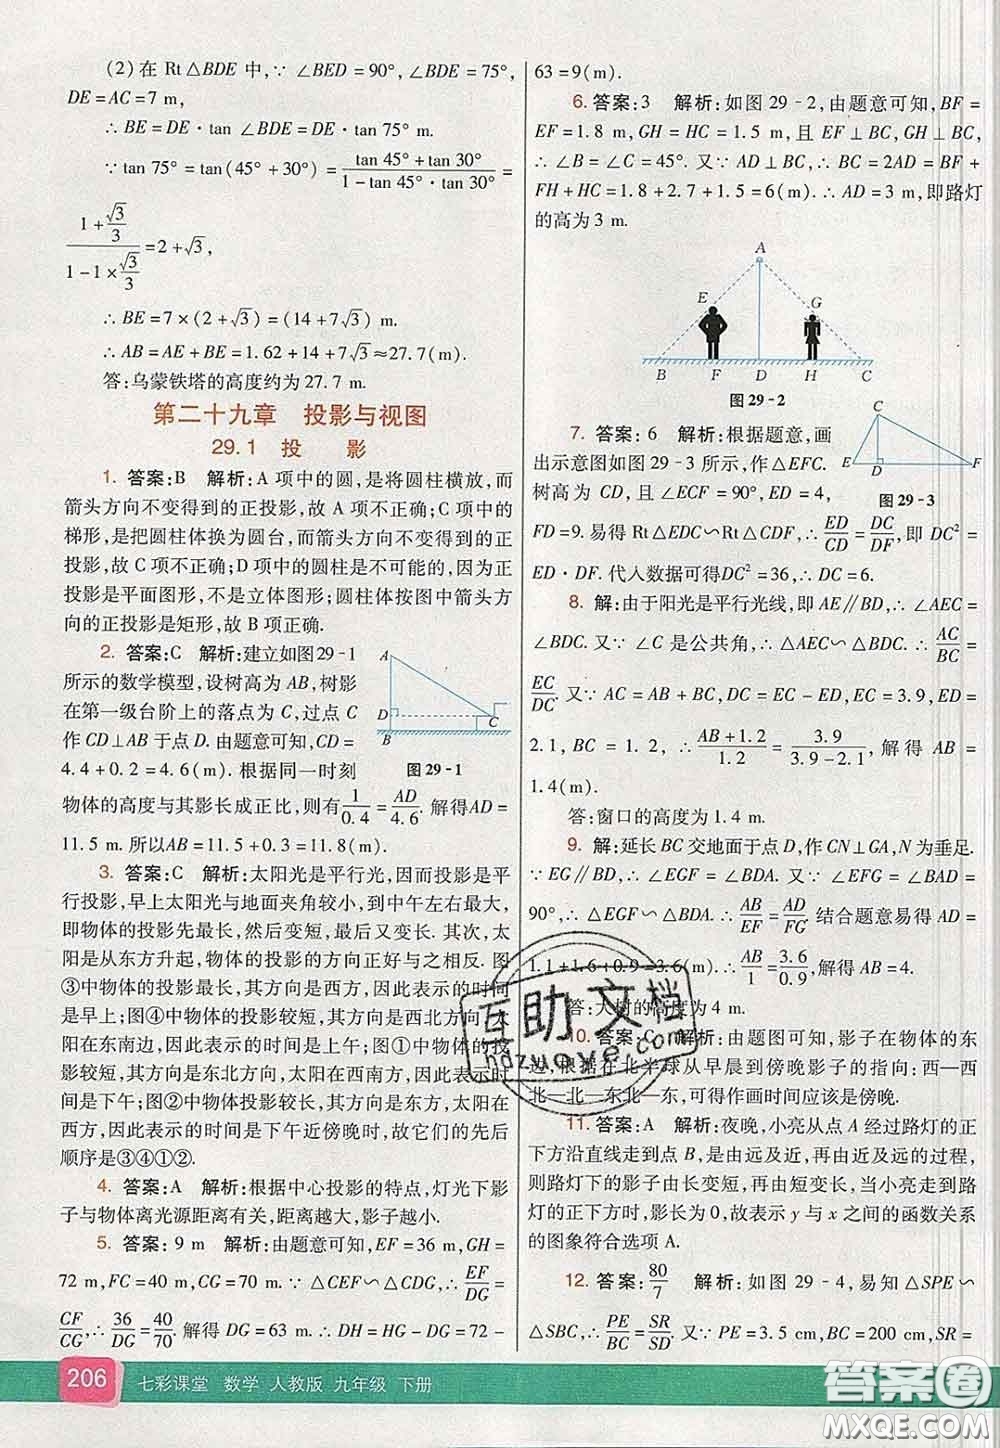 (2)在 Rt△BDE 中,∵ ∠BED=90°,∠BDE=75°,
DE=AC=7 m,
∴ BE=DE·tan ∠BDE=7×tan 75° m.
∵tan 75°=tan(45°+30°)=(tan 45°+tan 30°)/(1-tan 45°·tan 30°)=
(1+√3/3)/(1-1×√3/3)=2+√3,
∴ BE=7×(2+√3)=(14+7√3) m.
∴ AB=AE+BE=1.62+14+7√3≈27.7(m).
答:乌蒙铁塔的高度约为27.7 m.
第二十九章 投影与视图
29.1 投 影
1. 答案:B 解析:A 项中的圆,是将圆柱横放,而
箭头方向不变得到的正投影,故 A 项不正确;C项中的
梯形,是把圆柱体换为圆台,而箭头方向不变得到的正
投影,故C项不正确;D项中的圆柱是不正确的,因为正
投影是平面图形,不是立体图形;圆柱体按图中箭头方
向的正投影是矩形,故 B 项正确.
2. 答案:C 解析:建立如图29-1
所示的数学模型,设树高为 AB,树影
在第一级台阶上的落点为 C,过点 C
作 CD⊥AB 于点 D.由题意可知,CD=
4.4+0.2=4.6(m).根据同一时刻
物体的高度与其影长成正比,则有1/0.4=AD/4.6.解得AD=
11.5 m.所以AB=11.5+0.3=11.8(m).
A
D
B
C
图29-1
3. 答案:C 解析:太阳光是平行光,因而投影是平
行投影,早上太阳光与地面夹角较小,到中午左右最大,
即物体的投影先最长,然后变短,最后变长.其次,太
阳是从东方升起,物体的投影的方向正好与之相反.图
③中物体的投影最长,其方向是正西,因此表示的时间
是早上;图④中物体的投影较短,其方向是西北方向,太
阳在东南边,因此表示的时间是上午;图①中物体的投
影较短,其方向是东北方向,太阳在西南方,因此表示的
时间是下午;图②中物体投影较长,其方向是东方,太阳在
西方,因此表示的时间是下午近傍晚,故它们的先后
顺序是③④①②.
4. 答案:A 解析:根据中心投影的特点,灯光下影
子与物体离光源距离有关,距离越大,影子越小.
5. 答案:9 m 解析:由题意可知,EF=36 m,GH=
72 m,FC=40 m,CG=70 m.∵ △CEF∽△CDG,∴EF/DG=
CF/CG,∴36/DG=40/70.解得 DG=63 m.∴ DH=HG-DG=72-
63=9(m).
6. 答案:3 解析:如图 29-2,由题意可知,BF=
EF=1.8 m,GH=HC=1.5 m,且 EF⊥BC,GH⊥BC,
∴ ∠B=∠C=45°.又∵ AD⊥BC,∴ BC=2AD=BF+
FH+HC=1.8+2.7+1.5=6(m).∴ AD=3 m,即路灯
的高为3 m.
A
E
G
B F D H C
图29-2
7. 答案:6 解析:根据题意,画
出示意图如图 29-3 所示,作△EFC.
树高为 CD,且∠ECF=90°,ED=4,
FD=9.易得 Rt△EDC∽Rt△CDF,∴ED/CD=DC/DF,即 DC²=
ED·DF.代入数据可得DC²=36,∴DC=6.
C
E
D
F
图29-3
8. 解:由于阳光是平行光线,即 AE∥BD,∴∠AEC=
∠BDC.又∵ ∠C 是公共角,∴ △AEC∽△BDC.∴AC/BC=
EC/DC.又∵ AC=AB+BC,DC=EC-ED,EC=3.9,ED=
2.1,BC=1.2,∴(AB+1.2)/1.2=3.9/(3.9-2.1),解得 AB=
1.4(m).
答:窗口的高度为1.4 m.
9. 解:延长 BC 交地面于点 D,作 CN⊥GA,N为垂足.
∵ EG∥BD,∴ ∠EGF=∠BDA.又∵ ∠EFG=∠BAD=
90°,∴ △EGF∽△BDA.∴AB/EF=AD/FG.结合题意易得 AD=
1.1+1.6+0.9=3.6(m).∴AB/1=3.6/0.9.∴AB=4.
答:大树的高度为4 m.
10. 答案:C 解析:由题图可知,影子在物体的东
边.根据在北半球从早晨到傍晚影子的指向:西—西
北—北—东北—东,可得作画时间应该是傍晚.
11. 答案:A 解析:夜晚,小亮从点 A 经过路灯的正
下方沿直线走到点 B,是由远及近,再由近及远的过程,
则路灯下的影子由长变短,再由短变长,当小亮走到路
灯的正下方时,影长为0,故表示 y 与 x 之间的函数关系
的图象符合选项 A.
12. 答案:80/7 解析:如图 29-4,易知△SPE∽
△SBC,∴PE/BC=SR/SD.又∵ PE=3.5 cm,BC=200 cm,SR=
互助文档
hdzuoye.com
206 七彩课堂 数学 人教版 九年级 下册
答案圈
MXQE.COM